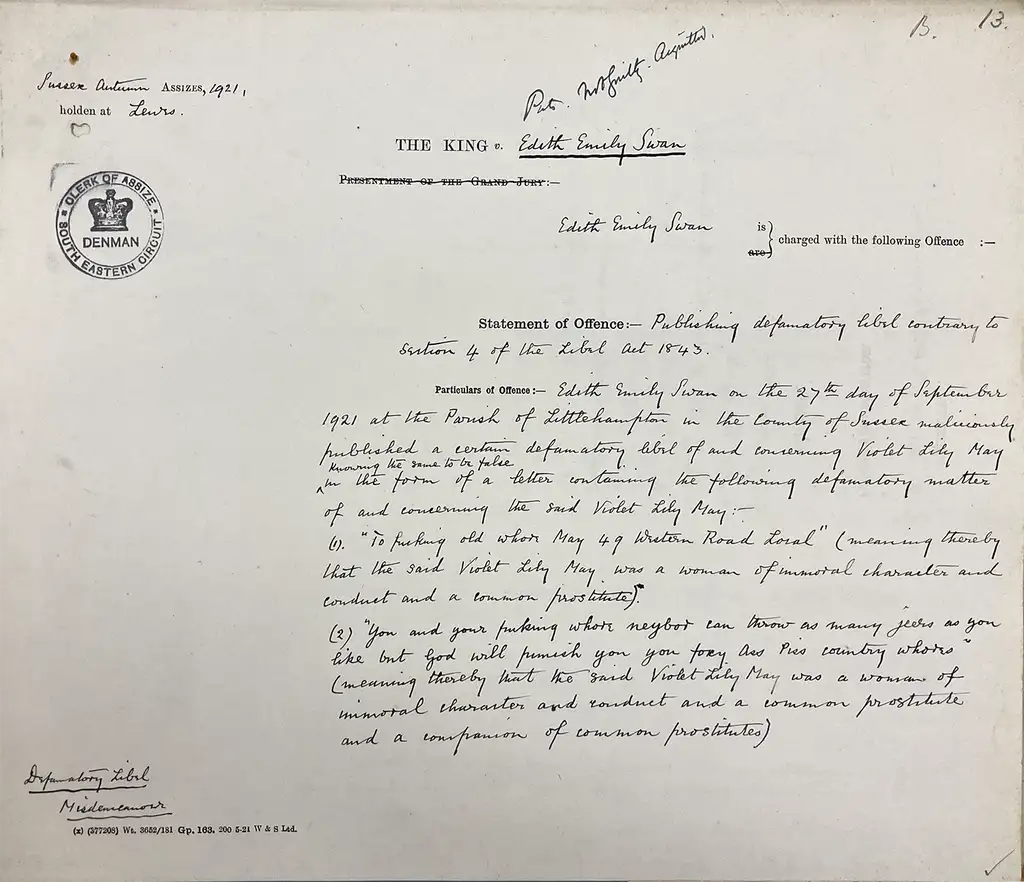 B. 13.
Puts. Not Guilty. Acquitted.
Sussex Autumn ASSIZES, 1921,
holden at Lewes.
THE KING v. Edith Emily Swan
PRESENTMENT OF THE GRAND JURY:—
CLERK OF ASSIZE
DENMAN
SOUTH EASTERN CIRCUIT
Edith Emily Swan is
are } charged with the following Offence :—
Statement of Offence:— Publishing defamatory libel contrary to
Section 4 of the Libel Act 1843.
Particulars of Offence:— Edith Emily Swan on the 27th day of September
1921 at the Parish of Littlehampton in the County of Sussex maliciously
published a certain defamatory libel of and concerning Violet Lily May
knowing the same to be false
in the form of a letter containing the following defamatory matter
of and concerning the said Violet Lily May:—
(1). "To fucking old whore May 49 Western Road Local" (meaning thereby
that the said Violet Lily May was a woman of immoral character and
conduct and a common prostitute).
(2) "You and your fucking whore neybor can throw as many jeers as you
like but God will punish you you foxy Ass Piss country whores"
(meaning thereby that the said Violet Lily May was a woman of
immoral character and conduct and a common prostitute
and a companion of common prostitutes)
Defamatory Libel
Misdemeanour
(x) (377208) Wt. 3652/181 Gp. 163. 200 5-21 W & S Ltd.